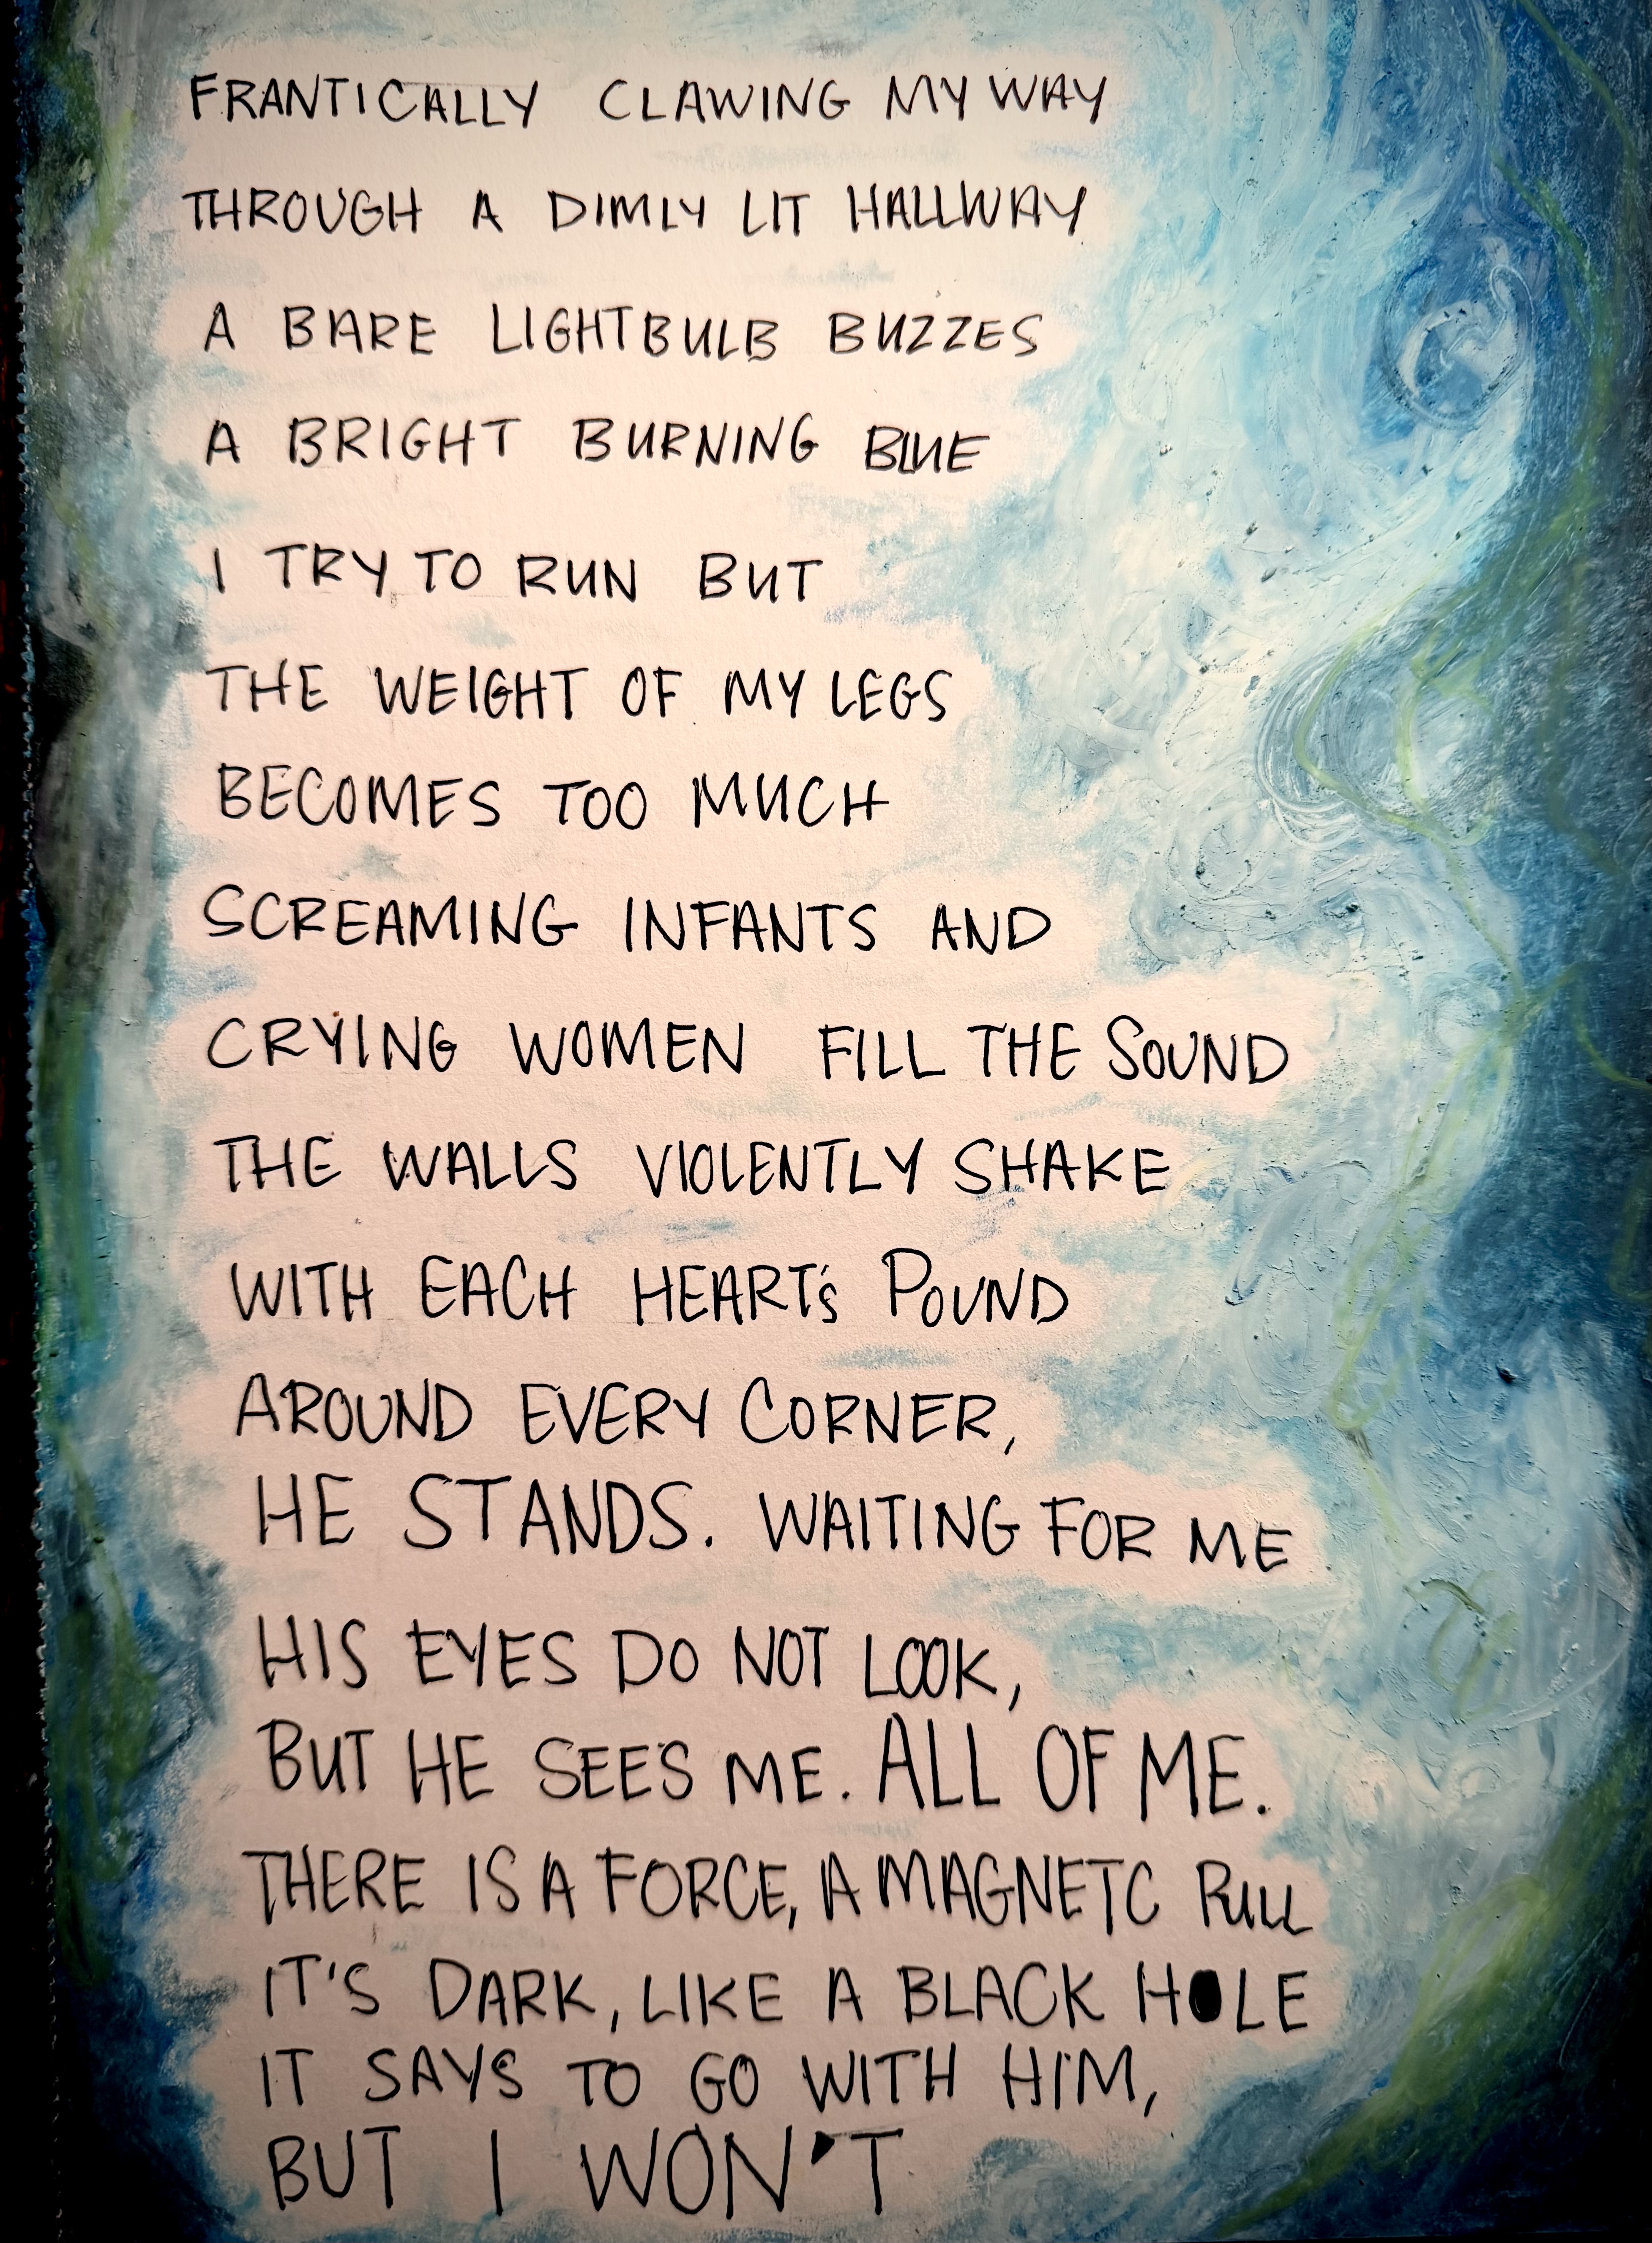 FRANTICALLY CLAWING MY WAY
THROUGH A DIMLY LIT HALLWAY
A BARE LIGHTBULB BUZZES
A BRIGHT BURNING BLUE
I TRY TO RUN BUT
THE WEIGHT OF MY LEGS
BECOMES TOO MUCH
SCREAMING INFANTS AND
CRYING WOMEN FILL THE SOUND
THE WALLS VIOLENTLY SHAKE
WITH EACH HEART's POUND
AROUND EVERY CORNER,
HE STANDS. WAITING FOR ME
HIS EYES DO NOT LOOK,
BUT HE SEES ME. ALL OF ME.
THERE IS A FORCE, A MAGNETC PULL
IT'S DARK, LIKE A BLACK HOLE
IT SAYS TO GO WITH HIM,
BUT I WON'T